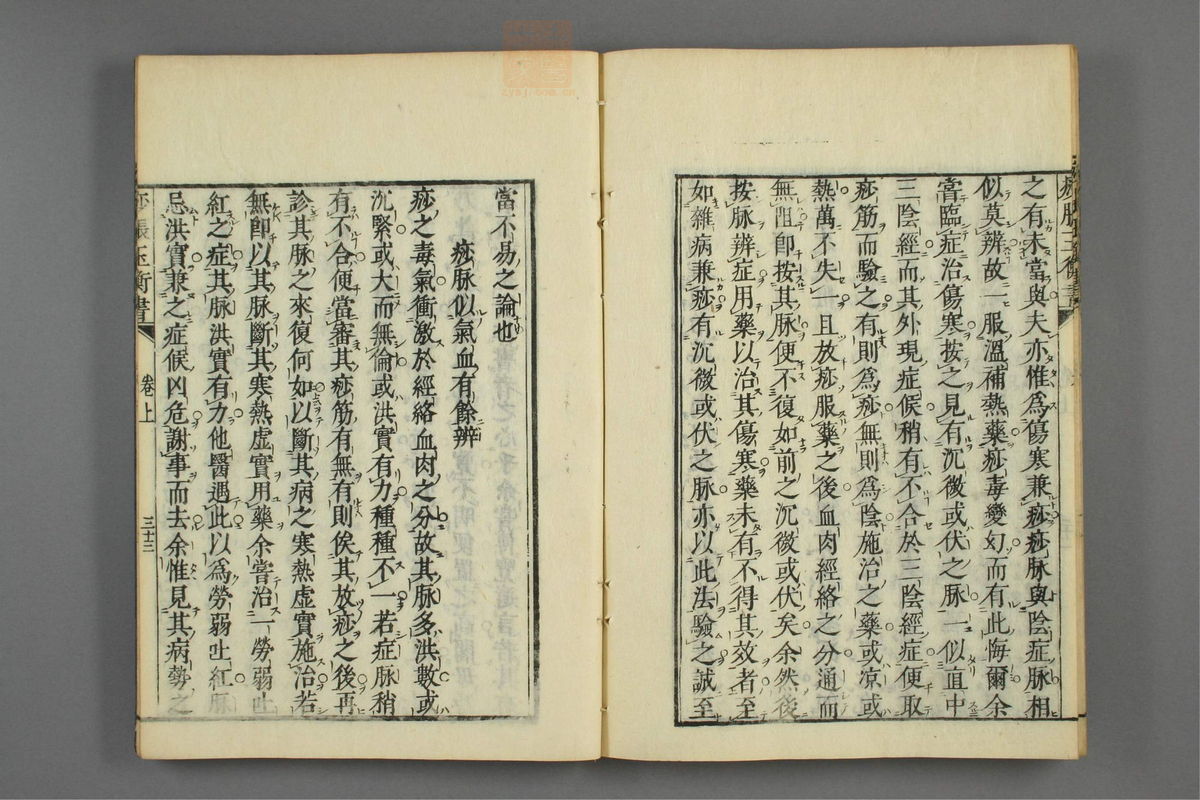 之有未當與夫亦惟爲傷寒兼痧痧脉與陰症脉相
似莫辨故一服溫補熱藥痧毒變幻而有此悔爾余
嘗臨症治傷寒按之見有沉微或伏之脉一似直中
三陰經而其外現症候稍有不合於三陰經症便取
痧筋而驗之有則爲痧無則爲陰施治之藥或凉或
熱萬不失一且放痧服藥之後血肉經絡之分通而
無阻卽按其脉便不復如前之沉微或伏矣余然後
按脉辨症用藥以治其傷寒藥未有不得其效者至
如雜病兼痧有沉微或伏之脉亦以此法驗之誠至
當不易之論也
痧脉似氣血有餘辨
痧之毒氣衝激於經絡血肉之分故其脉多洪數或
沉緊或大而無倫或洪實有力種種不一若症脉稍
有不合便當審其痧筋有無有則俟其放痧之後再
診其脉之來復何如以斷其病之寒熱虚實施治若
無卽以其脉斷其寒熱虚實用藥余嘗治一勞弱吐
紅之症其脉洪實有力他醫遇此以爲勞弱吐紅脉
忌洪實兼之症候凶危謝事而去余惟見其病勢之
卷上
三十三
zysj.com.cn